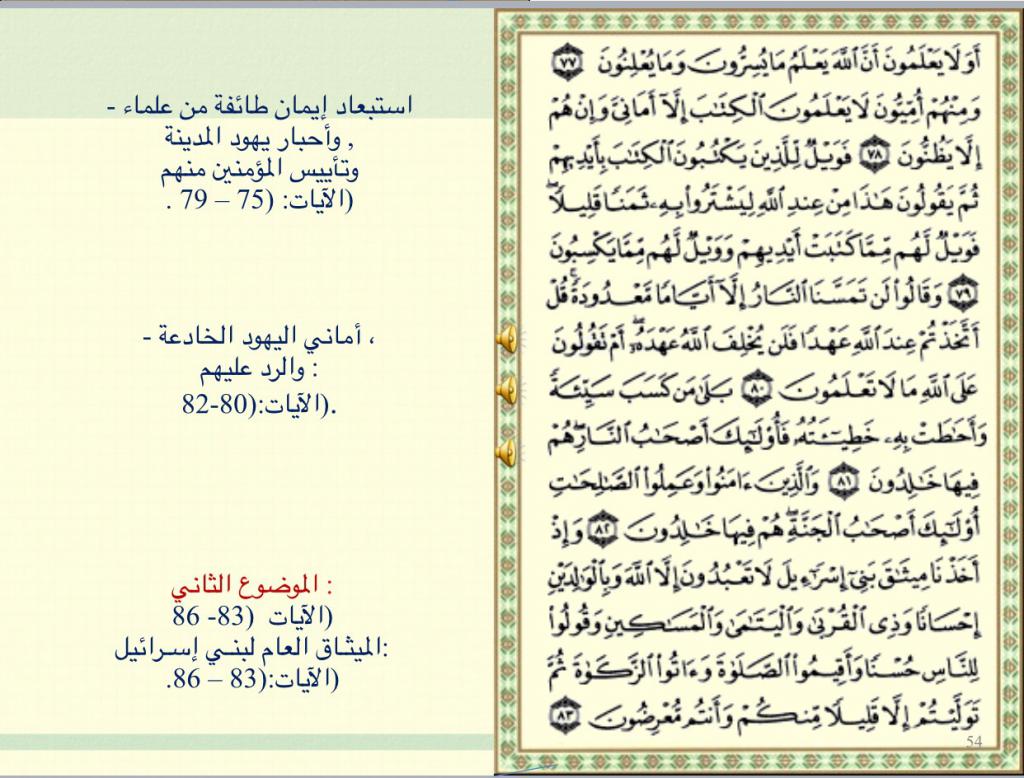 أَوَلَا يَعْلَمُونَ أَنَّ ٱللَّهَ يَعْلَمُ مَا يُسِرُّونَ وَمَا يُعْلِنُونَ ٧٧
وَمِنْهُمْ أُمِّيُّونَ لَا يَعْلَمُونَ ٱلْكِتَٰبَ إِلَّآ أَمَانِىَّ وَإِنْ هُمْ
إِلَّا يَظُنُّونَ ٧٨ فَوَيْلٌ لِّلَّذِينَ يَكْتُبُونَ ٱلْكِتَٰبَ بِأَيْدِيهِمْ
ثُمَّ يَقُولُونَ هَٰذَا مِنْ عِندِ ٱللَّهِ لِيَشْتَرُوا۟ بِهِۦ ثَمَنًا قَلِيلًا ۖ
فَوَيْلٌ لَّهُم مِّمَّا كَتَبَتْ أَيْدِيهِمْ وَوَيْلٌ لَّهُم مِّمَّا يَكْسِبُونَ
٧٩ وَقَالُوا۟ لَن تَمَسَّنَا ٱلنَّارُ إِلَّآ أَيَّامًا مَّعْدُودَةً ۚ قُلْ
أَتَّخَذْتُمْ عِندَ ٱللَّهِ عَهْدًا فَلَن يُخْلِفَ ٱللَّهُ عَهْدَهُۥٓ ۖ أَمْ تَقُولُونَ
عَلَى ٱللَّهِ مَا لَا تَعْلَمُونَ ٨٠ بَلَىٰ مَن كَسَبَ سَيِّئَةً
وَأَحَٰطَتْ بِهِۦ خَطِيٓـَٔتُهُۥ فَأُو۟لَٰٓئِكَ أَصْحَٰبُ ٱلنَّارِ ۖ هُمْ
فِيهَا خَٰلِدُونَ ٨١ وَٱلَّذِينَ ءَامَنُوا۟ وَعَمِلُوا۟ ٱلصَّٰلِحَٰتِ
أُو۟لَٰٓئِكَ أَصْحَٰبُ ٱلْجَنَّةِ ۖ هُمْ فِيهَا خَٰلِدُونَ ٨٢ وَإِذْ
أَخَذْنَا مِيثَٰقَ بَنِىٓ إِسْرَٰٓءِيلَ لَا تَعْبُدُونَ إِلَّا ٱللَّهَ وَبِٱلْوَٰلِدَيْنِ
إِحْسَانًا وَذِى ٱلْقُرْبَىٰ وَٱلْيَتَٰمَىٰ وَٱلْمَسَٰكِينِ وَقُولُوا۟
لِلنَّاسِ حُسْنًا وَأَقِيمُوا۟ ٱلصَّلَوٰةَ وَءَاتُوا۟ ٱلزَّكَوٰةَ ثُمَّ
تَوَلَّيْتُمْ إِلَّا قَلِيلًا مِّنكُمْ وَأَنتُم مُّعْرِضُونَ ٨٣
54
استبعاد إيمان طائفة من علماء -
, وأحبار يهود المدينة
وتأييس المؤمنين منهم
(الآيات: (75 – 79 .
، أماني اليهود الخادعة -
: والرد عليهم
.(الآيات:(80-82
: الموضوع الثاني
(الآيات (83- 86
:الميثاق العام لبني إسرائيل
(الآيات:(83 – 86.